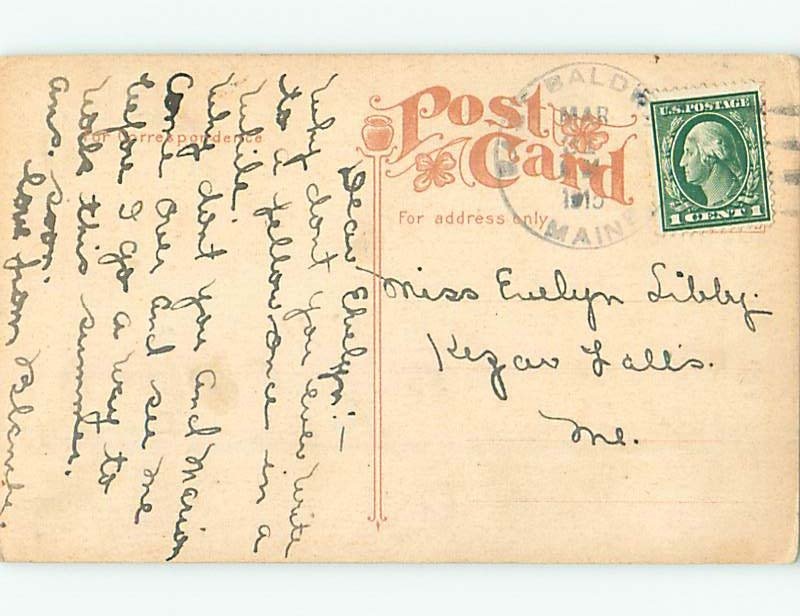 Post
Card
For correspondence
For address only
BALD
MAR
1915
MAINE
U.S. POSTAGE
1 CENT 1
Dear Evelyn:—
Why dont you ever write
to a fellow once in a
while.
Why dont you and Marion
Come over and see me
before I go a way to
work this summer.
ans. soon.
love from
Miss Evelyn Libby.
Kezar Falls.
Me.